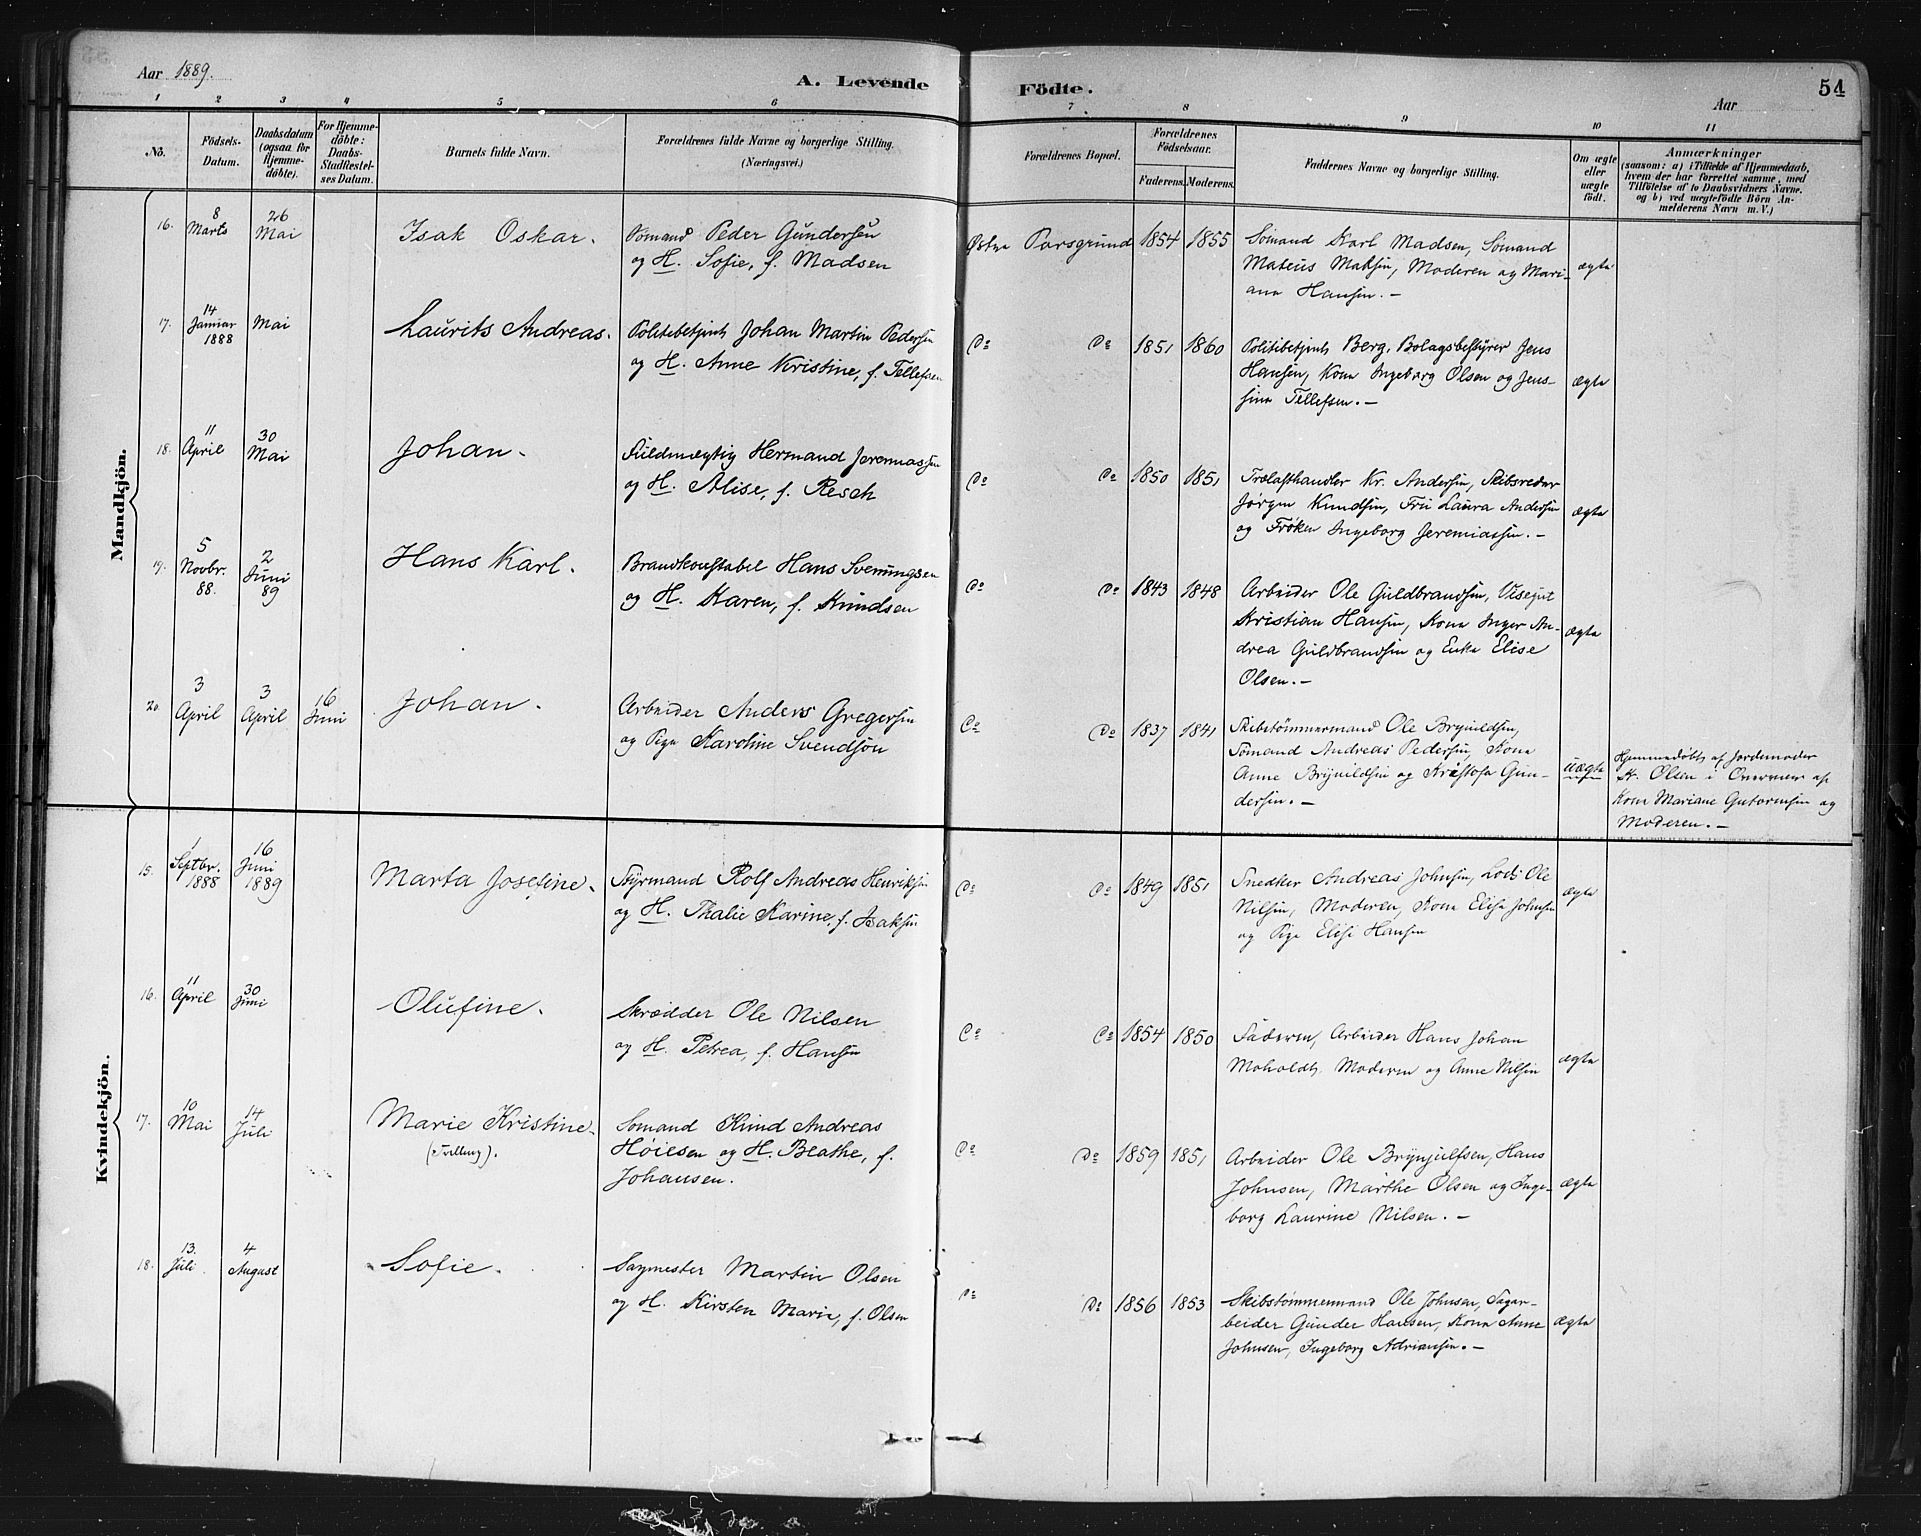 Aar 1889.
A. Levende
Födte.
Aar
54
1 2 3 4 5 6 7 8 9 10 11
No.
Födsels-
Datum.
Daabsdatum
(ogsaa for
Hjemme-
döbte).
For Hjemme-
döbte:
Daabs-
Stadfæstel-
ses Datum.
Barnets fulde Navn.
Forældrenes fulde Navne og borgerlige Stilling.
(Næringsvei.)
Forældrenes Bopæl.
Forældrenes
Födselsaar.
Faderens. Moderens.
Faddernes Navne og borgerlige Stilling.
Om ægte
eller
uægte
födt.
Anmærkninger
(saasom: a) i Tilfælde af Hjemmedaab,
hvem der har forrettet samme, med
Tilföielse af to Daabsvidners Navne,
og b) ved uægtefödte Börn An-
melderens Navn m. V.)
Mandkjön.
16.
8
Marts
26
Mai
Isak Oskar.
Sømand Peder Gundersen
og H. Sofie, f. Madsen
Østre Porsgrund
1854 1855
Sømand Karl Madsen, Sømand
Mateus Moderen og Mari-
ane Hansen. –
ægte
17.
14
Januar
1888
Mai
Laurits Andreas.
Politibetjent Johan Martin Pedersen
og H. Anne Kristine, f. Tellefsen
Do Do
1851 1860
Politibetjent Berg, Bolagsbestyrer Jens
Hansen, Kone Ingeborg Olsen og Jens-
sine Tellefsen. –
ægte
18.
11
April
30
Mai
Johan.
Fuldmægtig Hermand Jeremiassen
og H. Alise, f. Resch
Do Do
1850 1851
Trælasthandler Kr. Andersen, Skibsreder
Jørgen Knudsen, Fru Laura Andersen
og Frøken Ingeborg Jeremiassen. –
ægte
19.
5
Novbr.
88.
2
Juni
89
Hans Karl.
Brandkonstabel Hans Svenungsen
og H. Karen, f. Knudsen
Do Do
1843 1848
Arbeider Ole Guldbrandsen, Visegut
Kristian Hansen, Kone Inger An-
drea Guldbrandsen og Enke Elise
Olsen. –
ægte
20.
3
April
3
April
16
Juni
Johan.
Arbeider Anders Gregersen
og Pige Karoline Svendsen
Do Do
1837 1841
Skibstømmermand Ole Brynildsen,
Sømand Andreas Pedersen, Kone
Anne Brynildsen og Kristofa Gun-
dersen. –
uægte
Hjemmedøbt af Jordemoder
Olsen i Overvær af
Kone Mariane Gutormsen og
Moderen. –
Kvindekjön.
15.
1
Septbr.
1888
16
Juni
1889
Marta Josefine.
Styrmand Rolf Andreas Henriksen
og H. Thalie Karine, f. Isaksen
Do Do
1849 1851
Snedker Andreas Johnsen, Lods Ole
Nilsen, Moderen, Kone Elise Johnsen
og Pige Elise Hansen
ægte
16.
11
April
30
Juni
Olufine.
Skrædder Ole Nilsen
og H. Petrea, f. Hansen
Do Do
1854 1850
Faderen, Arbeider Hans Johan
Moholdt, Moderen og Anne Nilsen
ægte
17.
10
Mai
14
Juli
Marie Kristine.
(Tvilling).
Sømand Knud Andreas
Høiesen og H. Beathe, f.
Johansen.
Do Do
1859 1851
Arbeider Ole Brynjulfsen, Hans
Johnsen, Marthe Olsen og Inge-
borg Laurine Nilsen. –
ægte
18.
13.
Juli
4
August
Sofie.
Sagmester Martin Olsen
og H. Kirsten Marie, f. Olsen
Do Do
1856 1853
Skibstømmermand Ole Johnsen, Sagar-
beider Gunder Hansen, Kone Anne
Johnsen, Ingeborg Adriansen. –
ægte